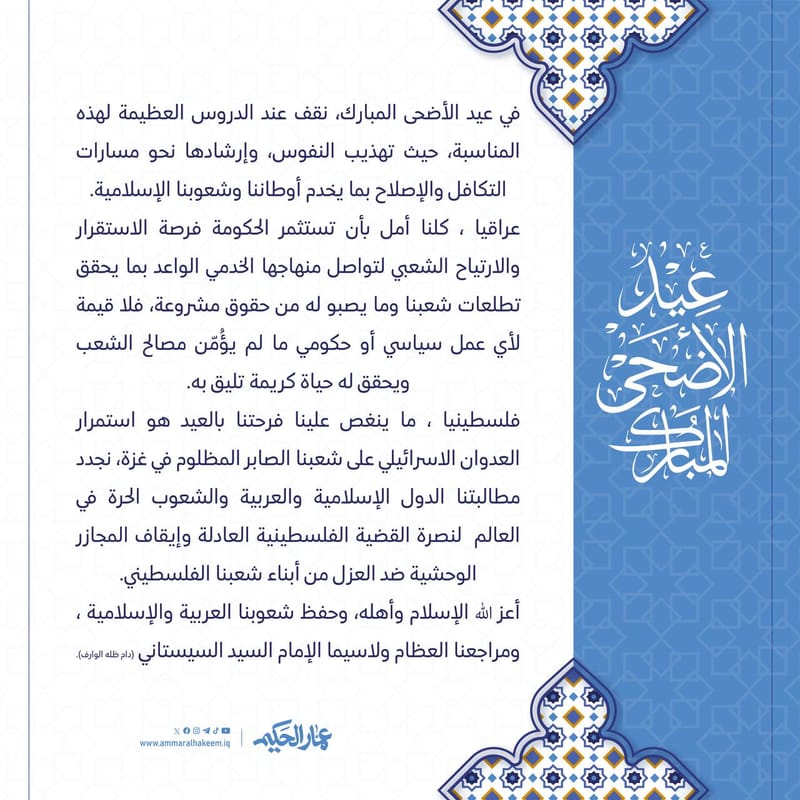 في عيد الأضحى المبارك، نقف عند الدروس العظيمة لهذه
المناسبة، حيث تهذيب النفوس، وإرشادها نحو مسارات
التكافل والإصلاح بما يخدم أوطاننا وشعوبنا الإسلامية.
عراقيا ، كلنا أمل بأن تستثمر الحكومة فرصة الاستقرار
والارتياح الشعبي لتواصل منهاجها الخدمي الواعد بما يحقق
تطلعات شعبنا وما يصبو له من حقوق مشروعة، فلا قيمة
لأي عمل سياسي أو حكومي ما لم يؤُمّن مصالح الشعب
ويحقق له حياة كريمة تليق به.
فلسطينيا ، ما ينغص علينا فرحتنا بالعيد هو استمرار
العدوان الاسرائيلي على شعبنا الصابر المظلوم في غزة، نجدد
مطالبتنا الدول الإسلامية والعربية والشعوب الحرة في
العالم لنصرة القضية الفلسطينية العادلة وإيقاف المجازر
الوحشية ضد العزل من أبناء شعبنا الفلسطيني.
أعز الله الإسلام وأهله، وحفظ شعوبنا العربية والإسلامية ،
ومراجعنا العظام ولاسيما الإمام السيد السيستاني (دام ظله الوارف).
عِيْدُ
الأَضْحَىْ
المُبَارَك
عمار الحكيم
www.ammaralhakeem.iq